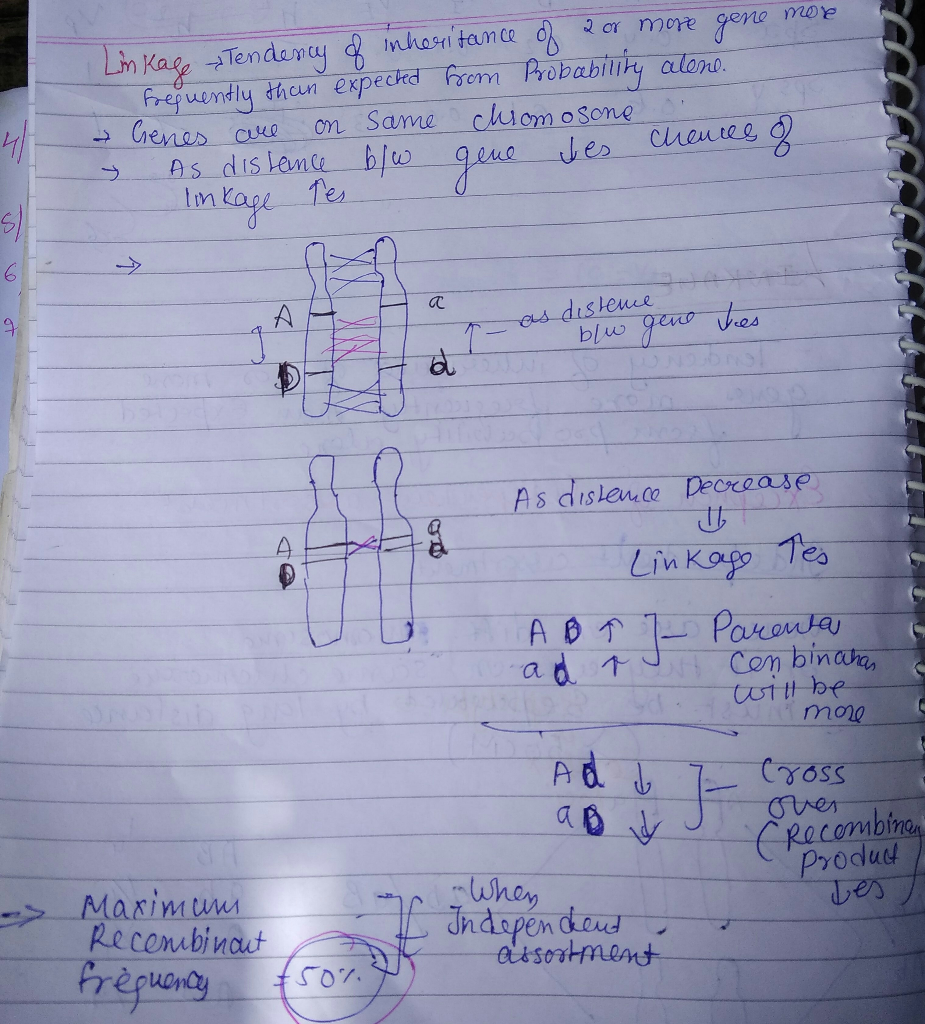 Linkage → Tendency of inheritance of 2 or more gene more
frequently than expected from Probability alone.
→ Genes are on same chromosone
→ As distence b/w gene ↓es chances of
linkage ↑es
4/
5/
6
7
→
A a
↑ - as distence
b/w gene ↓es
D d
As distence Decrease
⇓
Linkage ↑es
A a
D d
A D ↑ ]- Parental
a d ↑ Combination
will be
more
A d ↓ ]- Cross
a D ↓ over
(Recombinan
product
↓es)
⇒ Maximum
Recombinant
frequency = 50%
When
Independent
assortment